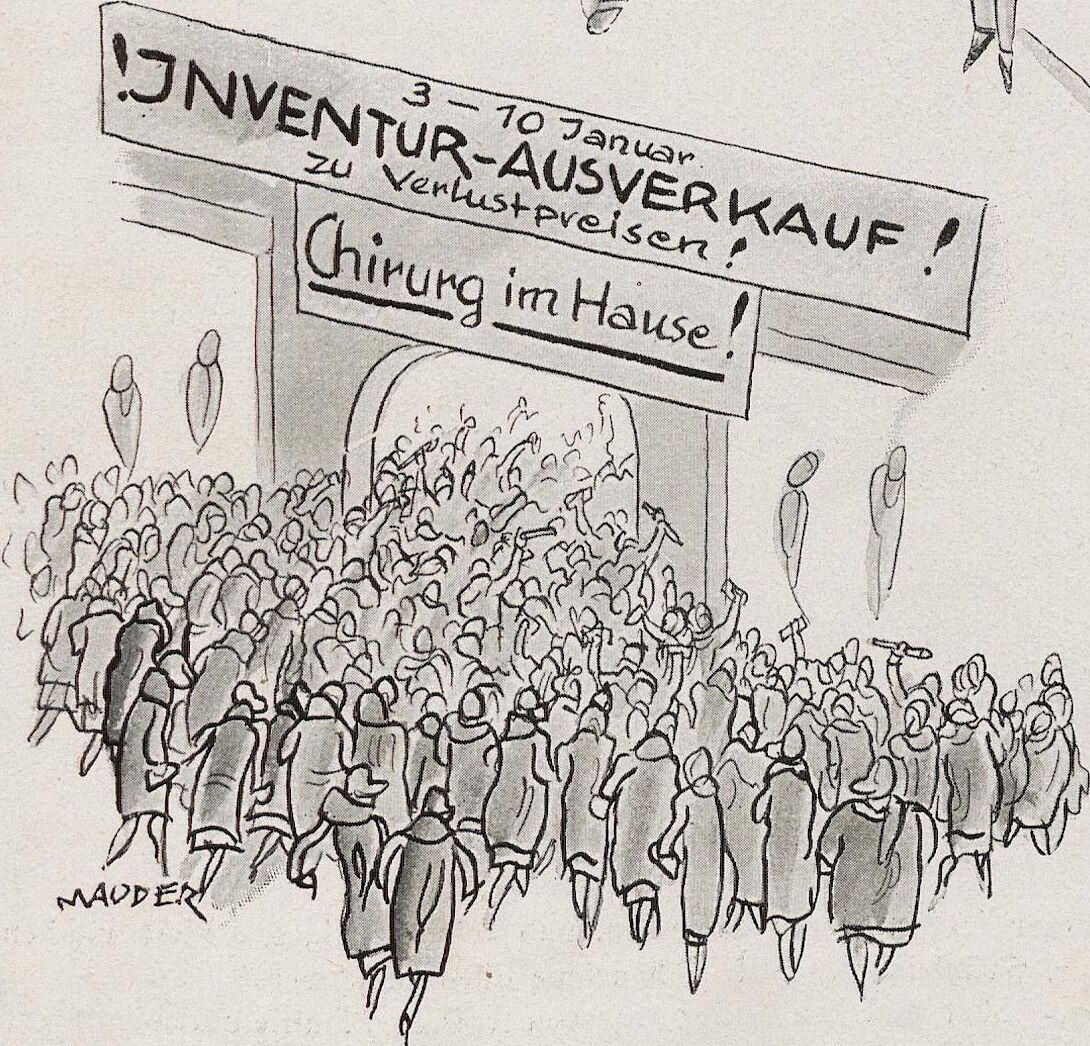 3 – 10 Januar.
!JNVENTUR-AUSVERKAUF!
zu Verlustpreisen!
Chirurg im Hause!
MAUDER